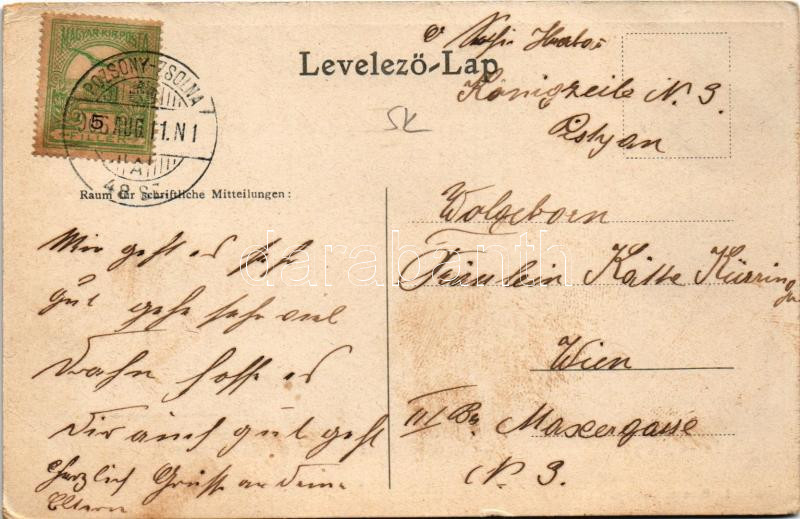 MAGYAR·KIR·POSTA
5
FILLÉR
POZSONY-ZSOLNA
AUG 11. N 1
A
48 SZ
Levelező-Lap
Königzeile N. 3.
Pistyan
SK
Raum für schriftliche Mitteilungen:
Mir geht es sehr
gut gehe sehr viel
hoffe es
Dir auch gut geht
Herzlich Grüsse an Deine
Eltern
Wolgeborn
Fräulein Käthe
Wien
III Bz. Maxergasse
N. 3.
darabanth.com